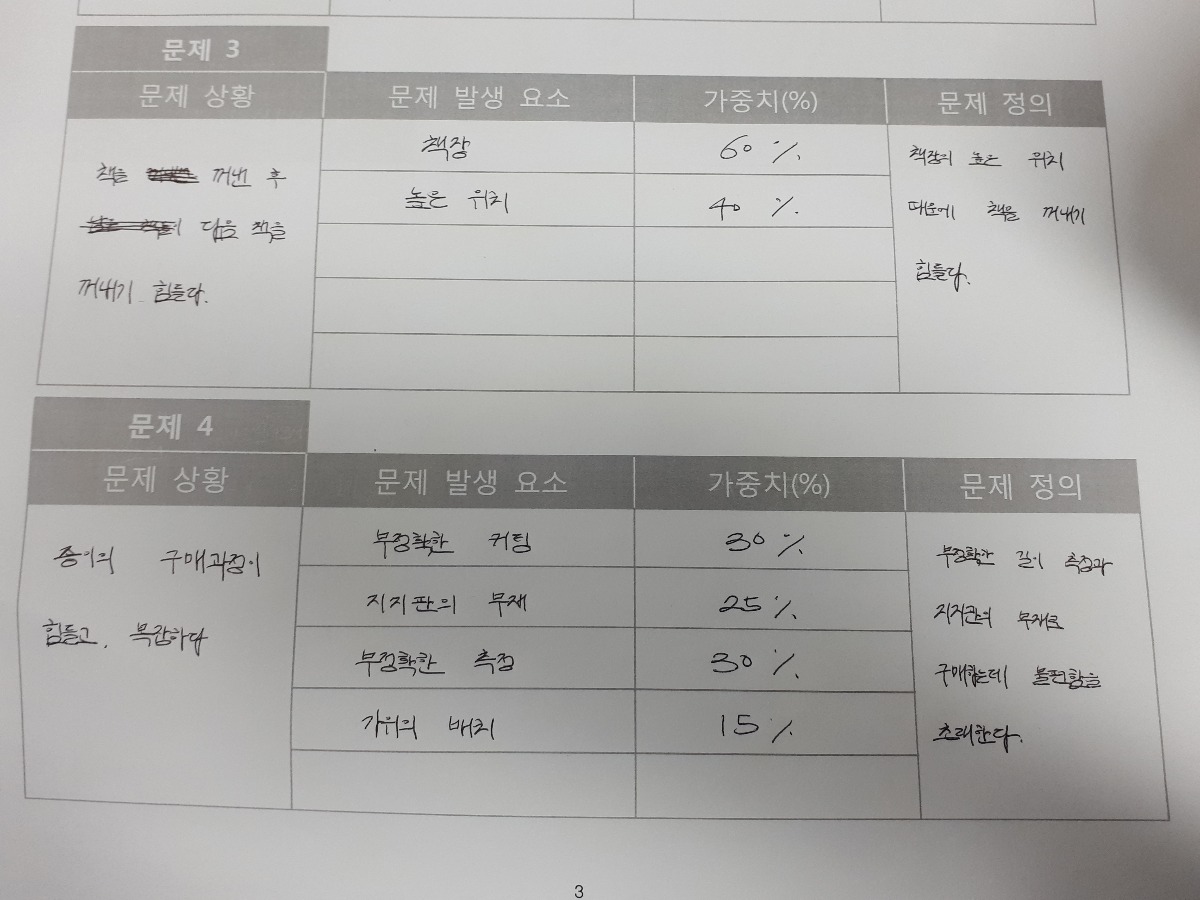 문제 3
문제 상황 문제 발생 요소 가중치(%) 문제 정의
책을 꺼낸 후
다음 책을
꺼내기 힘들다.
책장 60 %
높은 위치 40 %
책장의 높은 위치
때문에 책을 꺼내기
힘들다.
문제 4
문제 상황 문제 발생 요소 가중치(%) 문제 정의
종이의 구매과정이
힘들고, 복잡하다
부정확한 커팅 30 %
지지판의 부재 25 %
부정확한 측정 30 %
가위의 배치 15 %
부정확한 길이 측정과
지지판의 부재로
구매하는데 불편함을
초래한다.
3